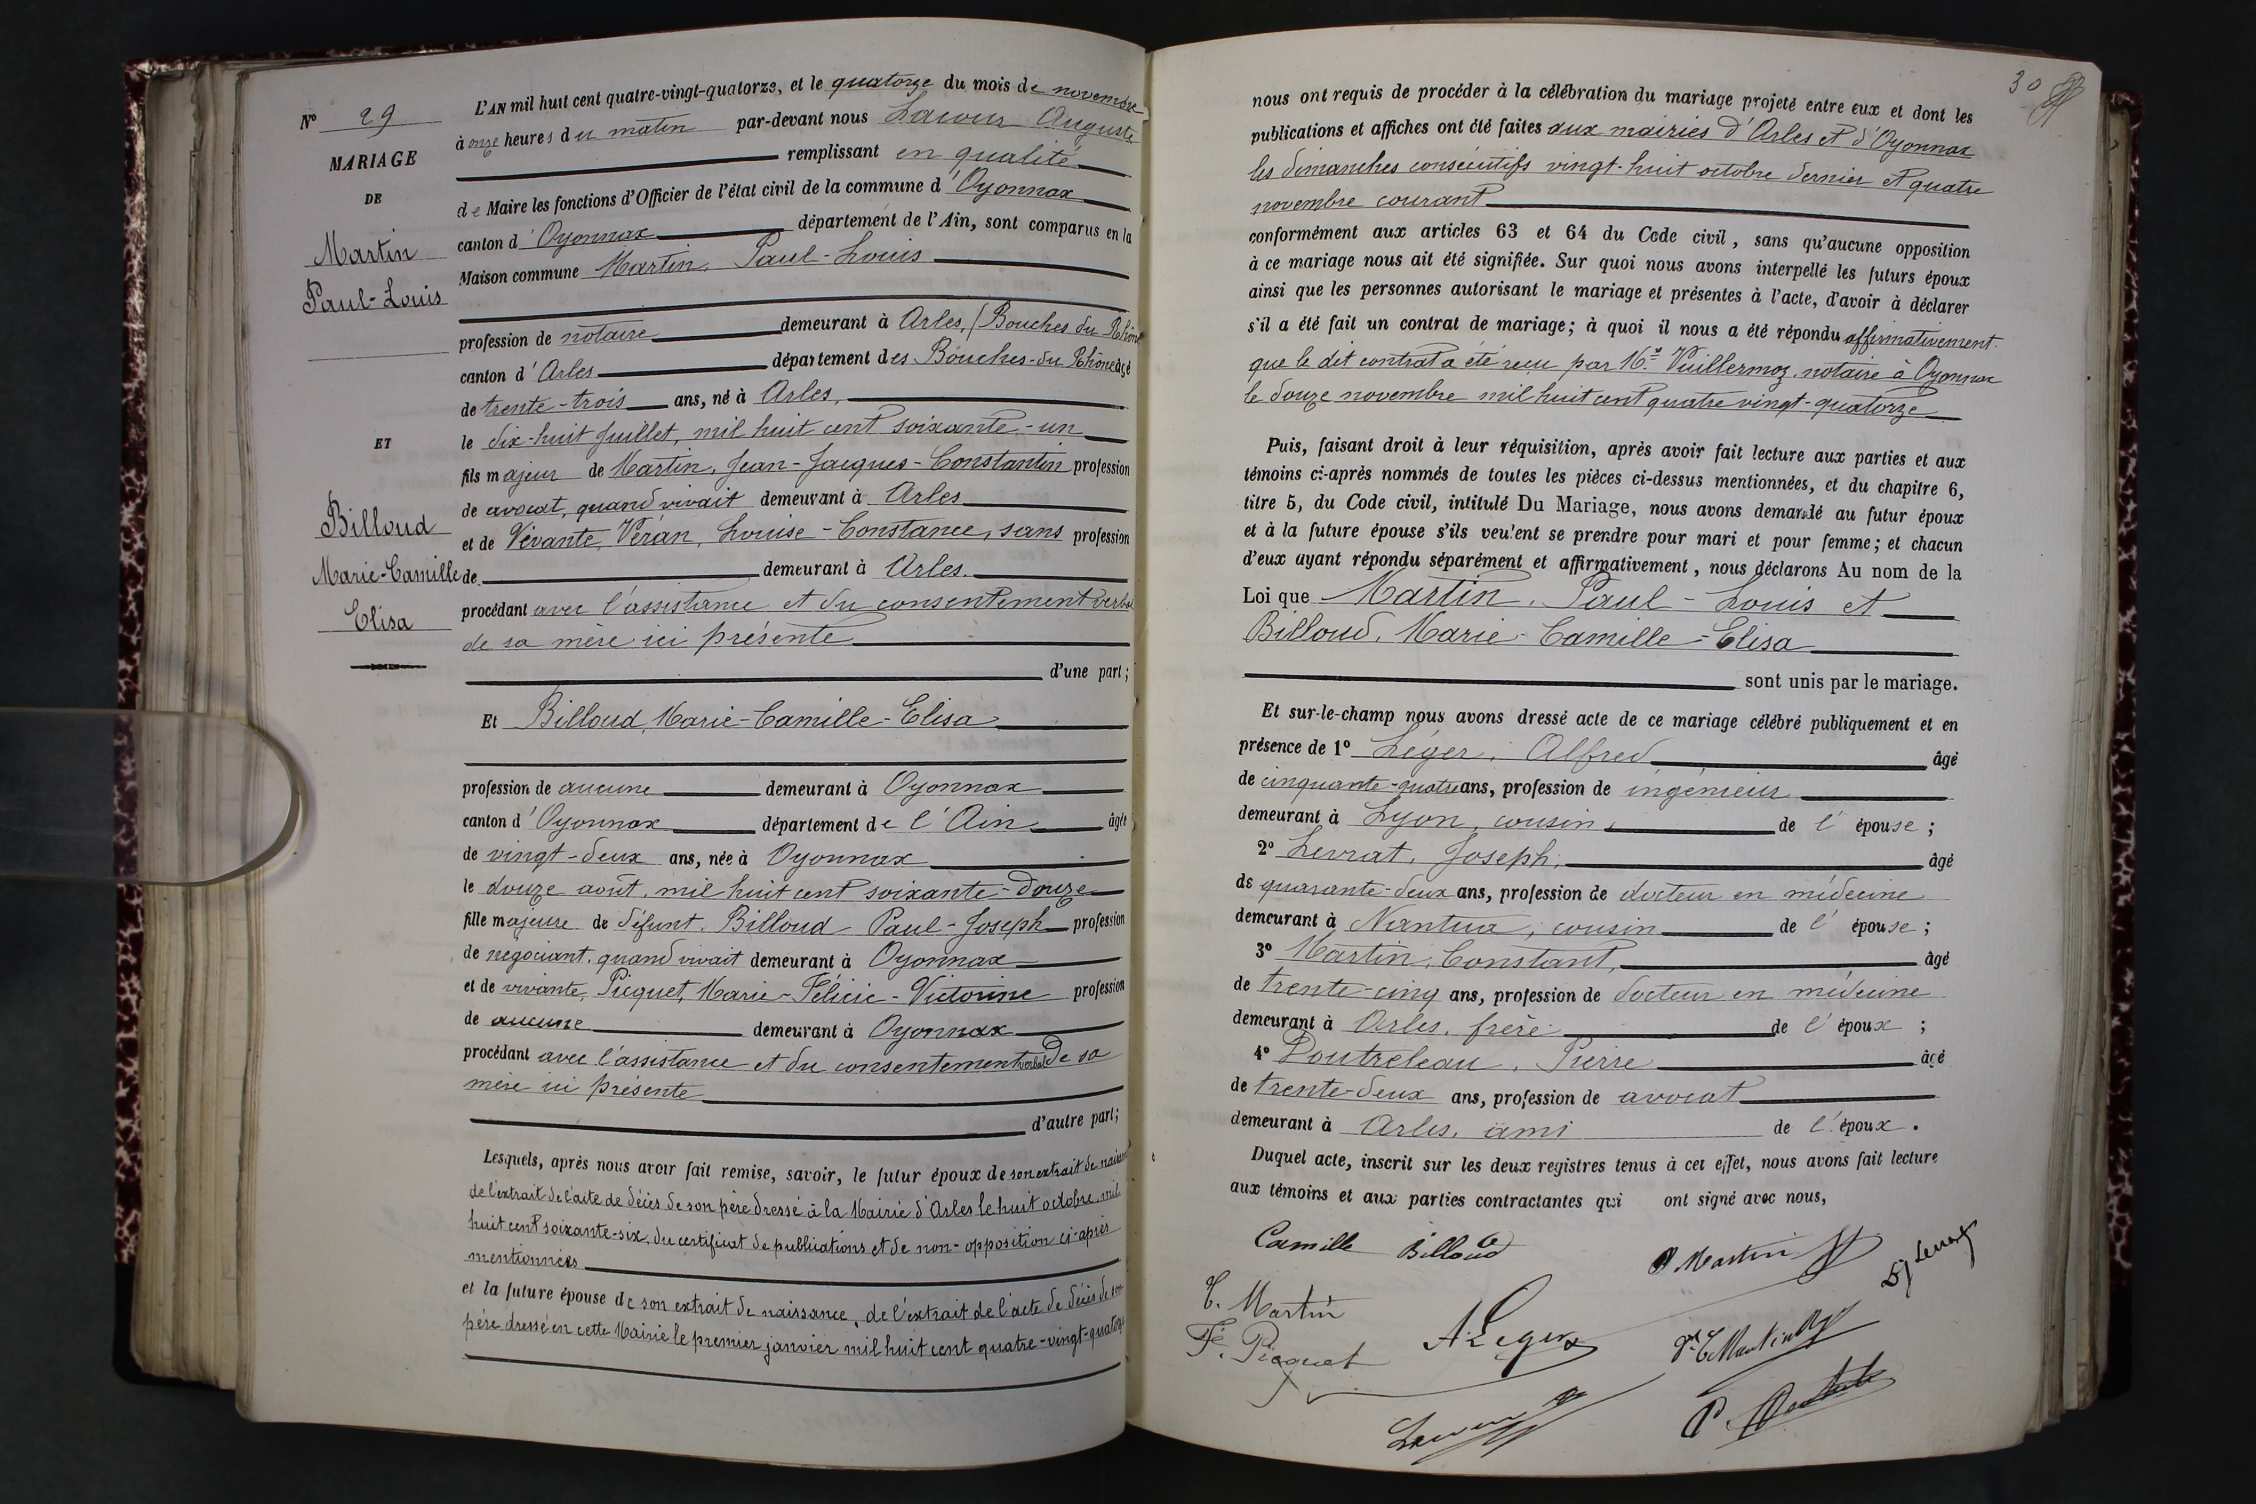 N° 29
MARIAGE
DE
Martin
Paul-Louis
ET
Billoud
Marie-Camille
Elisa
L'AN mil huit cent quatre-vingt-quatorze, et le quatorze du mois de novembre
à onze heures du matin par-devant nous Lacour Auguste
remplissant en qualité
de Maire les fonctions d'Officier de l'état civil de la commune d'Oyonnax
canton d'Oyonnax département de l'Ain, sont comparus en la
Maison commune Martin, Paul-Louis
profession de notaire demeurant à Arles, (Bouches du Rhône
canton d'Arles département des Bouches-du Rhône âgé
de trente-trois ans, né à Arles,
le dix-huit Juillet, mil huit cent soixante-un
fils majeur de Martin, Jean-Jacques-Constantin profession
de avocat, quand vivait demeurant à Arles
et de Vivante, Véran, Louise-Constance, sans profession
de demeurant à Arles.
procédant avec l'assistance et du consentement verbal
de sa mère ici présente
d'une part;
Et Billoud, Marie-Camille-Elisa
profession de aucune demeurant à Oyonnax
canton d'Oyonnax département de l'Ain âgée
de vingt-deux ans, née à Oyonnax
le douze août, mil huit cent soixante-douze
fille majeure de défunt Billoud Paul-Joseph profession
de négociant, quand vivait demeurant à Oyonnax
et de vivante, Picquet, Marie-Félicie-Victorine profession
de aucune demeurant à Oyonnax
procédant avec l'assistance et du consentement verbal de sa
mère ici présente
d'autre part;
Lesquels, après nous avoir fait remise, savoir, le futur époux de son extrait de naissance
de l'extrait de l'acte de décès de son père dressé à la Mairie d'Arles le huit octobre, mil
huit cent soixante-six, du certificat de publications et de non-opposition ci-après
mentionnées
et la future épouse de son extrait de naissance, de l'extrait de l'acte de décès de son
père dressé en cette Mairie le premier janvier mil huit cent quatre-vingt-quatorze
30
nous ont requis de procéder à la célébration du mariage projeté entre eux et dont les
publications et affiches ont été faites aux mairies d'Arles et d'Oyonnax
les dimanches consécutifs vingt-huit octobre dernier et quatre
novembre courant
conformément aux articles 63 et 64 du Code civil, sans qu'aucune opposition
à ce mariage nous ait été signifiée. Sur quoi nous avons interpellé les futurs époux
ainsi que les personnes autorisant le mariage et présentes à l'acte, d'avoir à déclarer
s'il a été fait un contrat de mariage; à quoi il nous a été répondu affirmativement.
que le dit contrat a été reçu par Me Vuillermoz, notaire à Oyonnax
le douze novembre mil huit cent quatre vingt-quatorze
Puis, faisant droit à leur réquisition, après avoir fait lecture aux parties et aux
témoins ci-après nommés de toutes les pièces ci-dessus mentionnées, et du chapitre 6,
titre 5, du Code civil, intitulé Du Mariage, nous avons demandé au futur époux
et à la future épouse s'ils veulent se prendre pour mari et pour femme; et chacun
d'eux ayant répondu séparément et affirmativement, nous déclarons Au nom de la
Loi que Martin, Paul-Louis et
Billoud, Marie-Camille-Elisa
sont unis par le mariage.
Et sur-le-champ nous avons dressé acte de ce mariage célébré publiquement et en
présence de 1° Léger, Alfred âgé
de cinquante-quatre ans, profession de ingénieur
demeurant à Lyon, cousin, de l'épouse;
2° Levrat, Joseph, âgé
de quarante-deux ans, profession de docteur en médecine
demeurant à Nantua, cousin de l'épouse;
3° Martin, Constant, âgé
de trente-cinq ans, profession de docteur en médecine
demeurant à Arles, frère de l'époux;
4° Poutreleau, Pierre âgé
de trente-deux ans, profession de avocat
demeurant à Arles, ami de l'époux.
Duquel acte, inscrit sur les deux registres tenus à cet effet, nous avons fait lecture
aux témoins et aux parties contractantes qui ont signé avec nous,
Camille Billoud
P Martin
Levrat
C. Martin
A. Léger
F. Picquet
Dr C Martin
Lacour